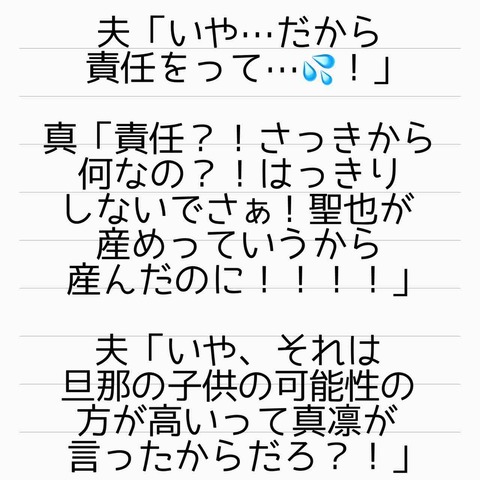 夫「いや…だから
責任をって…💦！」
真「責任？！さっきから
何なの？！はっきり
しないでさぁ！聖也が
産めっていうから
産んだのに！！！！」
夫「いや、それは
旦那の子供の可能性の
方が高いって真凛が
言ったからだろ？！」